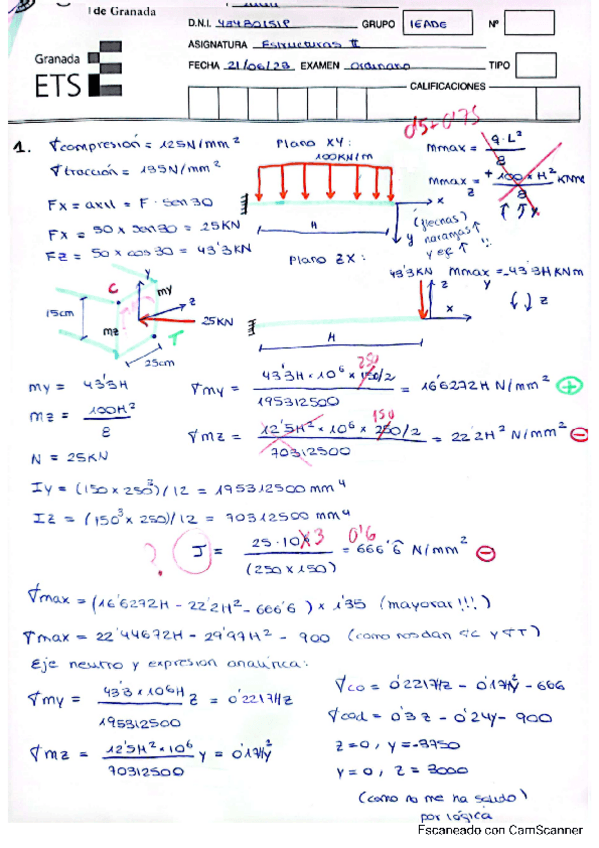 l de Granada
Granada
ETS
D.N.I. GRUPO IEADE Nº
ASIGNATURA Estructuras II
FECHA 21/06/23 EXAMEN ordinario TIPO
CALIFICACIONES
0'5+0'75
1. σcompresión = 125N/mm²
σtracción = 195N/mm²
Fx = axil = F · sen 30
Fx = 50 x sen 30 = 25KN
Fz = 50 x cos 30 = 43'3KN
Plano XY:
100KN/m
H
x
y
Mmax = q·L²/8
Mmax = + 100 x H²/8 KNm
z
(flechas)
naranjas
y eje !!
Plano ZX:
43'3KN
z
x
H
Mmax = -43'3H KNm
y
z
C
y
my
z
15cm
mz
25KN
T
25cm
my = 43'3H
mz = 100H²/8
N = 25KN
σmy = 43'3H x 10⁶ x 150/2 / 195312500 = 16'6272H N/mm² +
250
σmz = 12'5H² x 10⁶ x 250/2 / 70312500 = 22'2H² N/mm² -
150
Iy = (150 x 250³)/12 = 195312500 mm⁴
Iz = (150³ x 250)/12 = 70312500 mm⁴
?
σ = 25·10 x3 / (250 x 150) = 666'6 N/mm² -
0'6
σmax = (16'6272H - 22'2H² - 666'6) x 1'35 (mayorar!!!)
σmax = 22'44672H - 29'97H² - 900 (como nos dan σC y σT)
Eje neutro y expresion analítica:
σmy = 43'3 x 10⁶H / 195312500 z = 0'2217Hz
σmz = 12'5H² x 10⁶ / 70312500 y = 0'17Hy²
σco = 0'2217Hz - 0'17Hy² - 666
σcod = 0'3z - 0'24y - 900
z=0, y=-3750
y=0, z=3000
(como no me ha salido)
por lógica
Escaneado con CamScanner